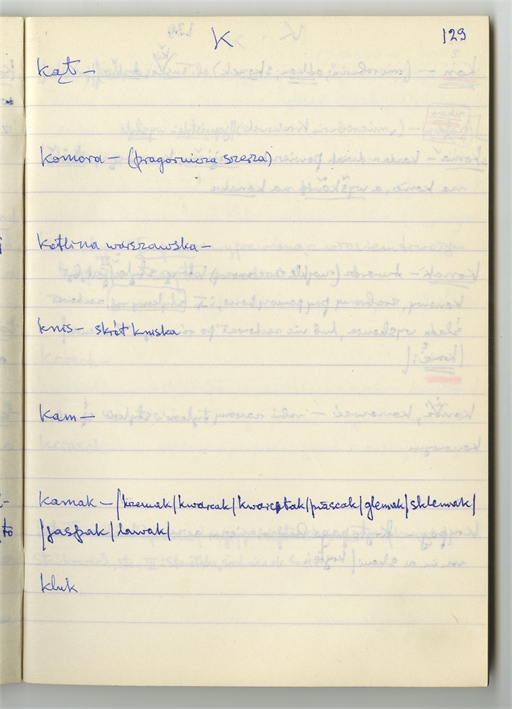 K
129
Kąt –
Komora – (pragórnicza szersza)
Kotlina warszawska –
knis – skrót kniska
Kam –
Kamak – /kremak/kwarcak/kwarcytak/piaskak/glemak/sklemak/
/jaspak/lawak/
Kluk